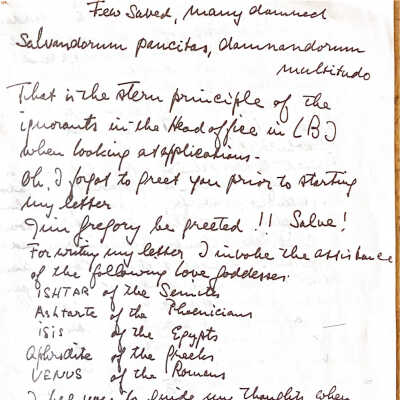 Few Saved, many damned
Salvandorum paucitas, damnandorum
multitudo
That is the stern principle of the
ignorants in the Head office in (B)
when looking at applications -
Oh, I forgot to greet you prior to starting
my letter
Jim Gregory be greeted !! Salve!
For writing my letter I invoke the assistance
of the following love goddesses:
ISHTAR of the Semites
Ashtarte of the Phoenicians
ISIS of the Egypts
Aphrodite of the Greeks
VENUS of the Romans
I beg you to guide my thoughts when